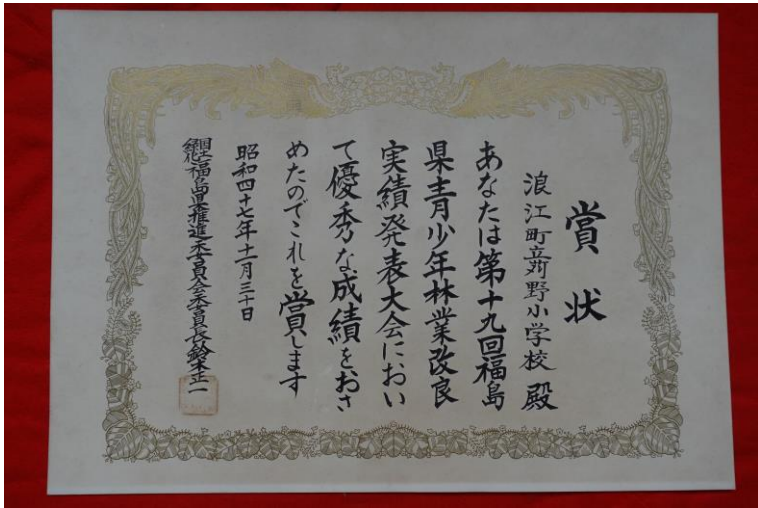 賞状
浪江町立苅野小学校 殿
あなたは第十九回福島
県青少年林業改良
実績発表大会におい
て優秀な成績をおさ
めたのでこれを賞します
昭和四十七年十一月三十日
国土緑化福島県推進委員会委員長鈴木正一